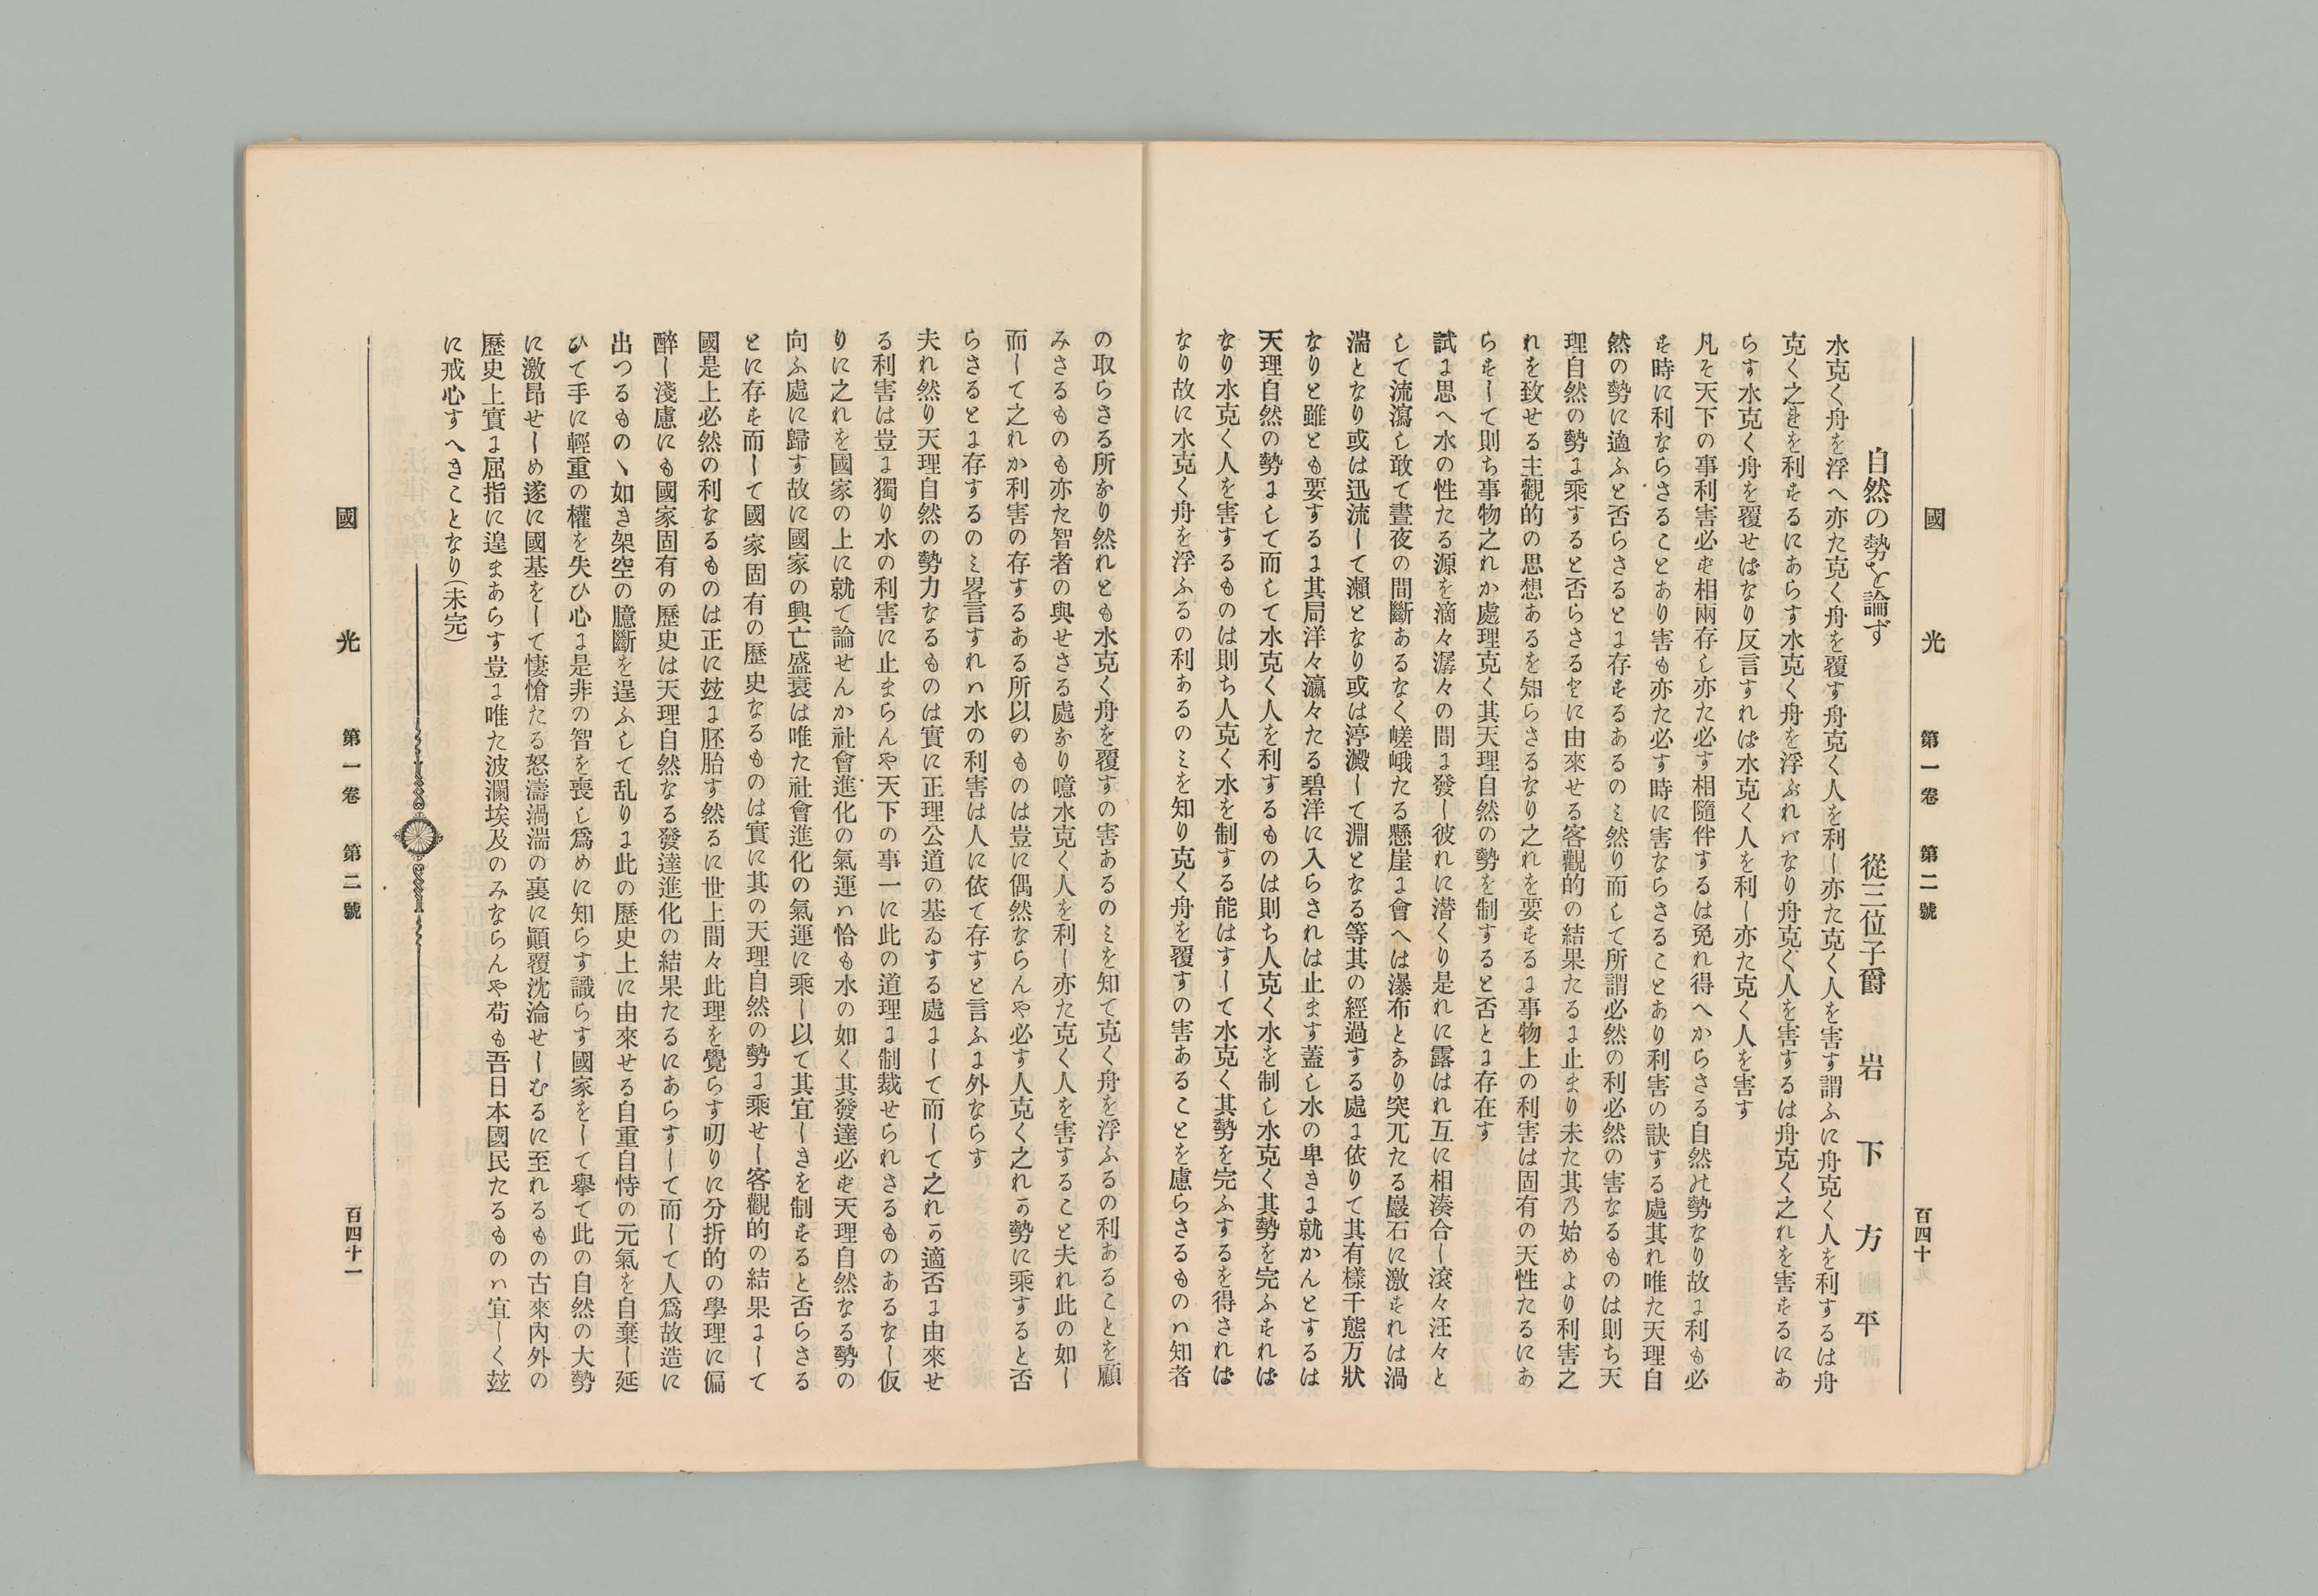 國光 第一卷 第二號 百四十
自然の勢を論ず
從三位子爵 岩下方平
水克く舟を浮へ亦た克く舟を覆す舟克く人を利し亦た克く人を害す謂ふに舟克く人を利するは舟
克く之れを利するにあらす水克く舟を浮ぶれバなり舟克く人を害するは舟克く之れを害するにあ
らす水克く舟を覆せばなり反言すれば水克く人を利し亦た克く人を害す
凡そ天下の事利害必ず相兩存し亦た必す相隨伴するは免れ得へからさる自然の勢なり故に利も必
す時に利ならさることあり害も亦た必す時に害ならさることあり利害の訣する處其れ唯た天理自
然の勢に適ふと否らさるとに存するあるのミ然り而して所謂必然の利必然の害なるものは則ち天
理自然の勢に乘すると否らさるとに由來せる客觀的の結果たるに止まり未た其乃始めより利害之
れを致せる主觀的の思想あるを知らさるなり之れを要するに事物上の利害は固有の天性たるにあ
らすして則ち事物之れか處理克く其天理自然の勢を制すると否とに存在す
試に思へ水の性たる源を滴々潺々の間に發し彼れに潜くり是れに露はれ互に相湊合し滾々汪々と
して流瀉し敢て晝夜の間斷あるなく嵯峨たる懸崖に會へは瀑布となり突兀たる巖石に激すれは渦
湍となり或は迅流して瀨となり或は渟澱して淵となる等其の經過する處に依りて其有樣千態万狀
なりと雖とも要するに其局洋々瀛々たる碧洋に入らされは止ます蓋し水の卑きに就かんとするは
天理自然の勢にして而して水克く人を利するものは則ち人克く水を制し水克く其勢を完ふすれば
なり水克く人を害するものは則ち人克く水を制する能はすして水克く其勢を完ふするを得されば
なり故に水克く舟を浮ふるの利あるのミを知り克く舟を覆すの害あることを慮らさるものハ知者
の取らさる所なり然れとも水克く舟を覆すの害あるのミを知て克く舟を浮ふるの利あることを顧
みさるものも亦た智者の與せさる處なり噫水克く人を利し亦た克く人を害すること夫れ此の如し
而して之れか利害の存するある所以のものは豈に偶然ならんや必す人克く之れの勢に乘すると否
らさるとに存するのミ畧言すれハ水の利害は人に依て存すと言ふに外ならす
夫れ然り天理自然の勢力なるものは實に正理公道の基ゐする處にして而して之れの適否に由來せ
る利害は豈に獨り水の利害に止まらんや天下の事一に此の道理に制裁せられさるものあるなし仮
りに之れを國家の上に就て論せんか社會進化の氣運ハ恰も水の如く其發達必ず天理自然なる勢の
向ふ處に歸す故に國家の興亡盛衰は唯た社會進化の氣運に乘し以て其宜しきを制すると否らさる
とに存す而して國家固有の歷史なるものは實に其の天理自然の勢に乘せし客觀的の結果にして
國是上必然の利なるものは正に玆に胚胎す然るに世上間々此理を覺らす叨りに分折的の學理に偏
醉し淺慮にも國家固有の歷史は天理自然なる發達進化の結果たるにあらすして而して人爲故造に
出つるものヽ如き架空の臆斷を逞ふして乱りに此の歷史上に由來せる自重自恃の元氣を自棄し延
ひて手に輕重の權を失ひ心に是非の智を喪し爲めに知らす識らす國家をして擧て此の自然の大勢
に激昂せしめ遂に國基をして悽愴たる怒濤渦湍の裏に顚覆沈淪せしむるに至れるもの古來內外の
歷史上實に屈指に遑まあらす豈に唯た波瀾埃及のみならんや苟も吾日本國民たるものハ宜しく玆
に戒心すへきことなり(未完)
國光 第一卷 第二號 百四十一